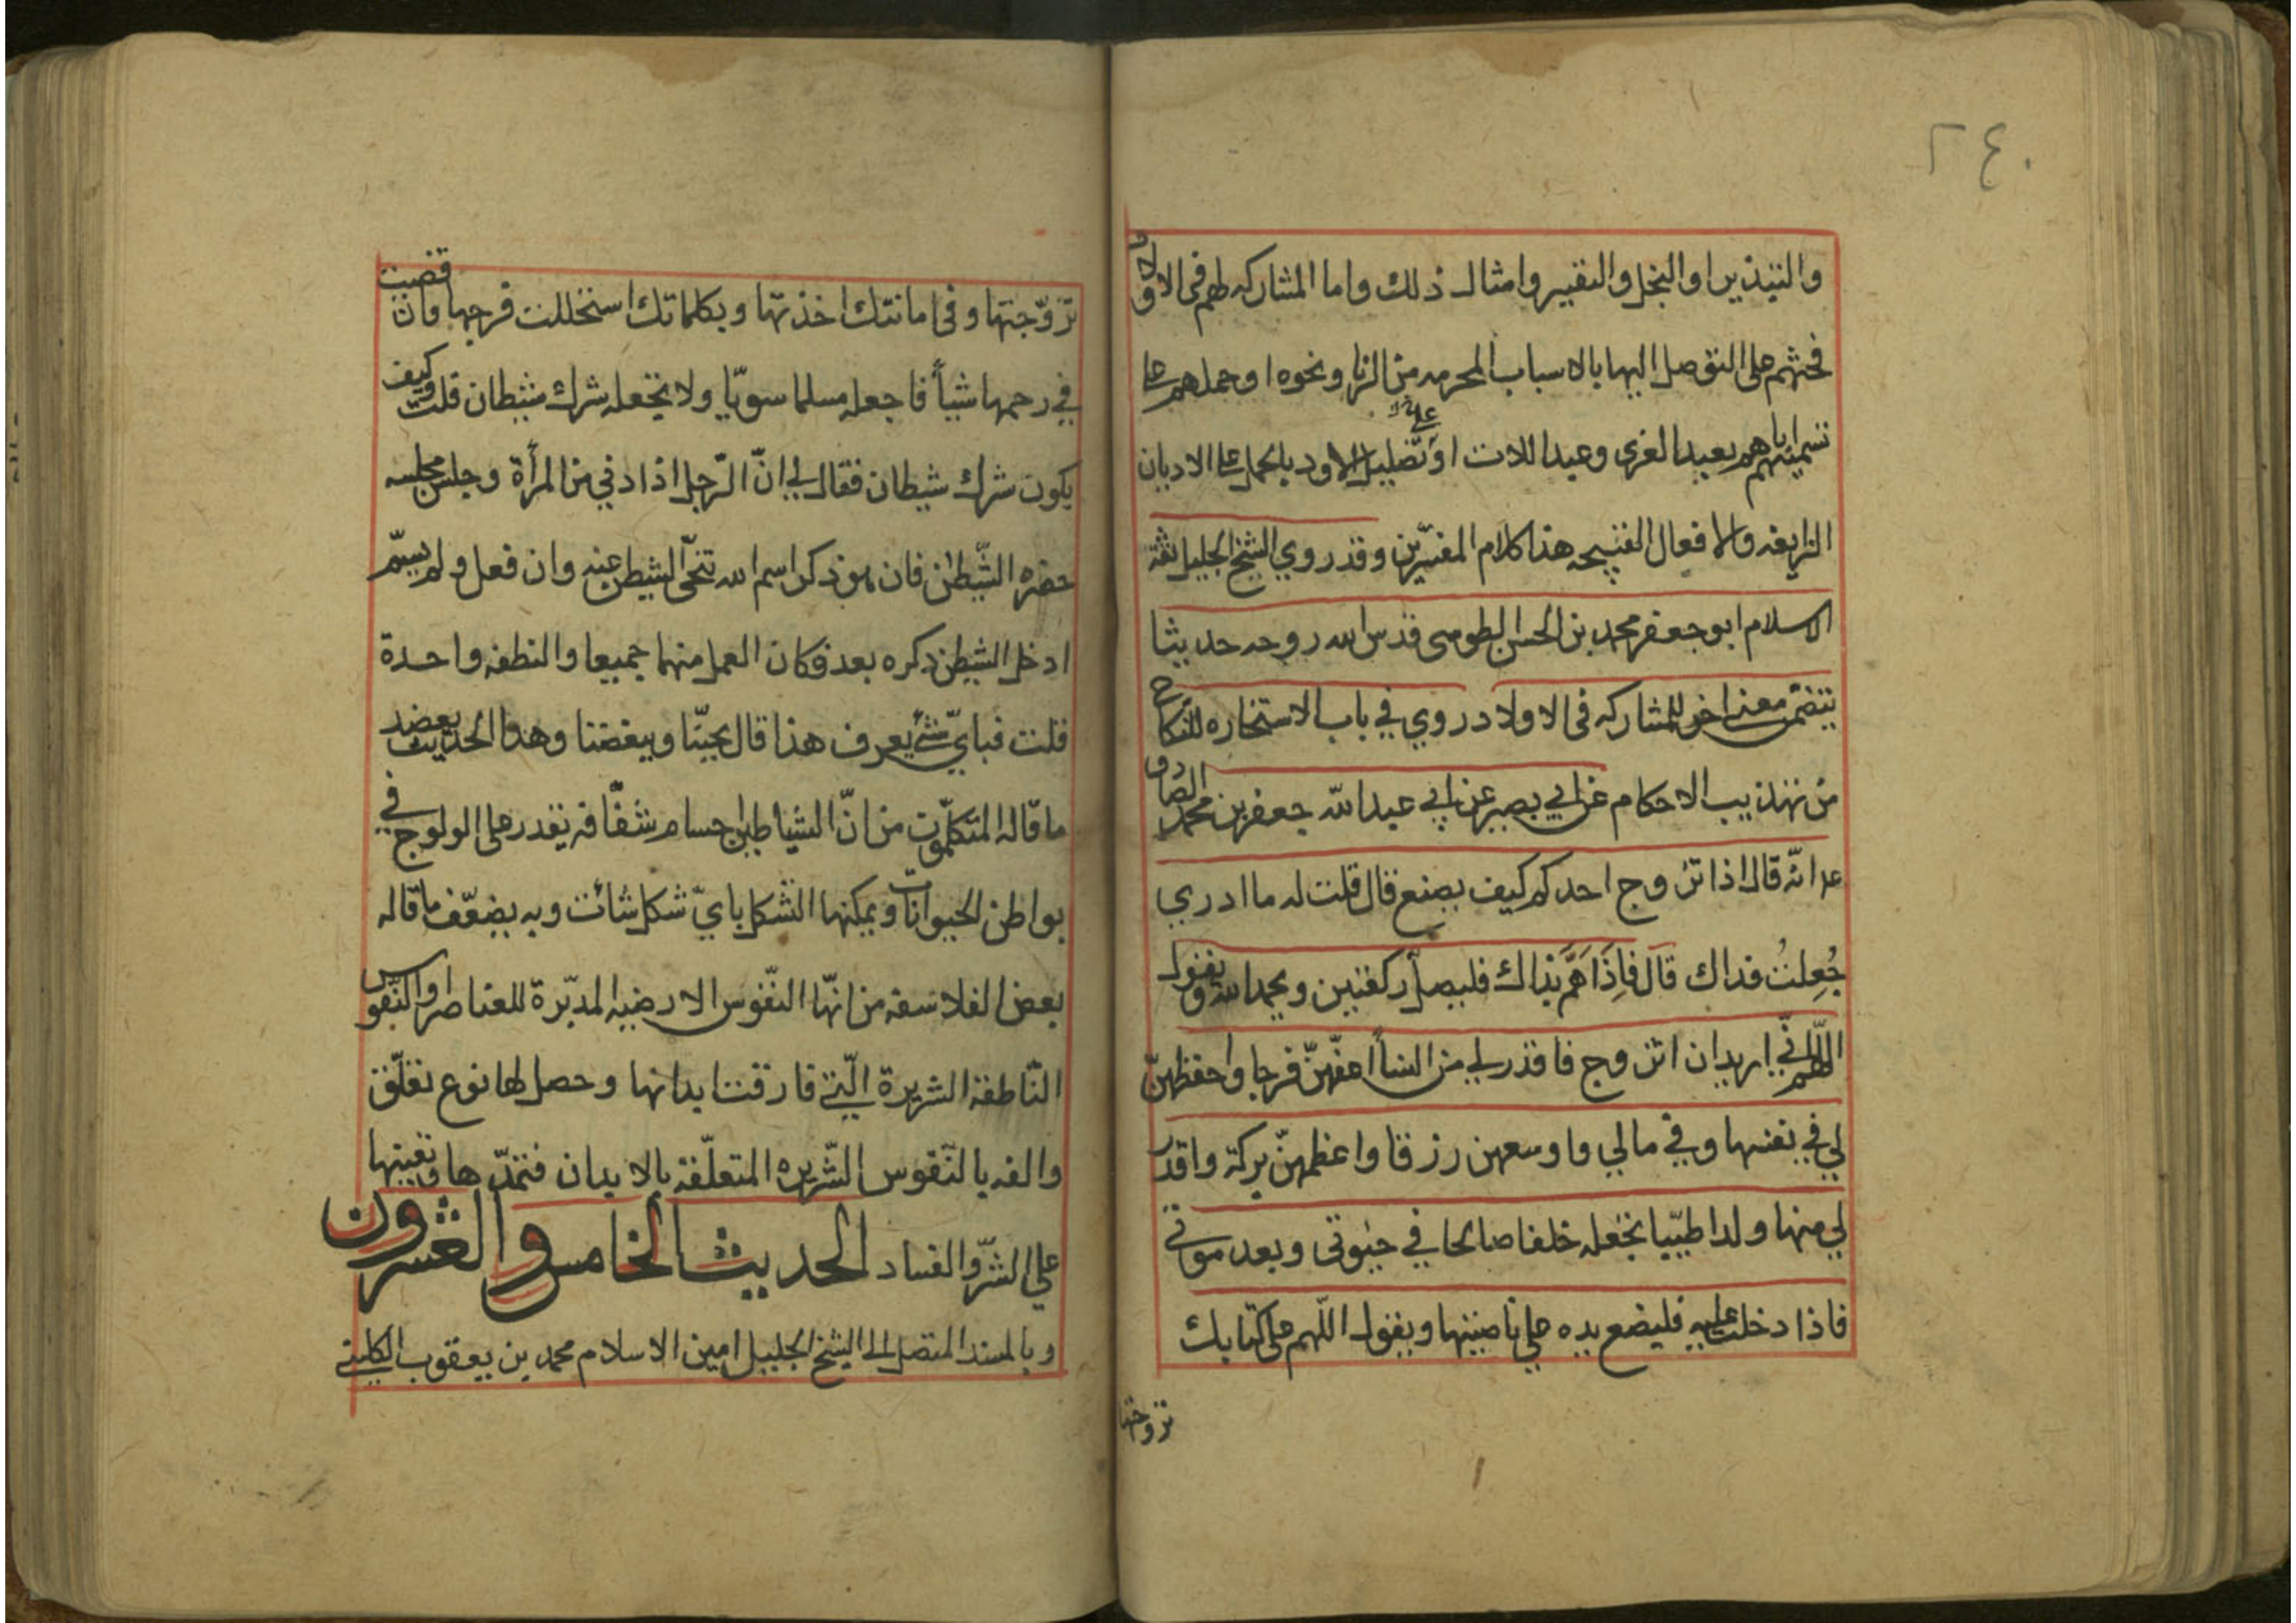 ٢٤٠
والتبذير او البخل والتقتير وامثال ذلك واما المشاركه لهم فى الاولاد
فحثهم على التوصل اليها بالاسباب المحرمه من الزنا ونحوه او حملهم على
تسميتهم اياهم بعبد العزى وعبد اللات او تضليل الاولاد بالحمل على الاديان
الزايغه والافعال القبيحه هذا كلام المفسّرين وقد روي الشيخ الجليل ثقة
الاسلام ابو جعفر محمد بن الحسن الطوسى قدس الله روحه حديثا
يتضمّن معنى اخر للمشاركه فى الاولاد روي في باب الاستخاره للنكاح
من تهذيب الاحكام عن ابي بصير عن ابي عبد الله جعفر بن محمد الصادق
ع انّه قال اذا تزوج احدكم كيف يصنع قال قلت له ما ادري
جُعِلتُ فداك قال فاِذَا هَمَّ بذاك فليصلّ ركعتين ويحمد الله ويقول
اللّهم انّي اريد ان اتزوج فاقدر لي من النساأ اعفّهنّ فرجا واحفظهنّ
لي في نفسها وفي مالي واوسعهن رزقا واعظمهنّ بركة واقدر
لي منها ولدا طيّبا تجعله خلفا صالحا في حيوتى وبعد موتي
فاذا دخلت عليه فليضع يده على ناصيتها ويقول اللّهم على كتابك
تزوجتها
تزوّجتها وفي امانتك اخذتها وبكلماتك استحللت فرجها وان قضيت
في رحمها شيأً فاجعله مسلما سويّا ولا تجعله شرك شيطان قلت وكيف
يكون شرك شيطان فقال لي انّ الرّجل اذا دني من المرأة وجلس مجلسه
حضره الشّيطن فان هو ذكر اسم الله تنحّى الشيطن عنه وان فعل ولم يسمّ
ادخل الشيطن ذكره بعد فكان العمل منهما جميعا والنطفه واحدة
قلت فبايّ شئ يعرف هذا قال بحبّنا وببغضنا وهذا الحديث يعضد
ما قاله المتكلّمون من انّ الشياطين اجسام شفّافه تقدر على الولوج في
بواطن الحيوانات ويمكنها التشكل بايّ شكل شائت وبه يضعّف ما قاله
بعض الفلاسفه من انّها النّفوس الارضيه المدبّرة للعناصر او النّفوس
النّاطقة الشريرة الّتي فارقت ابدانها وحصل لها نوع تعلّق
والفه بالنّفوس الشّريره المتعلّقة بالابدان فتمدّها وتعينها
على الشرّ والفساد الحديث الخامس والعشرون
وبالسند المتصل الى الشيخ الجليل امين الاسلام محمد بن يعقوب الكليني